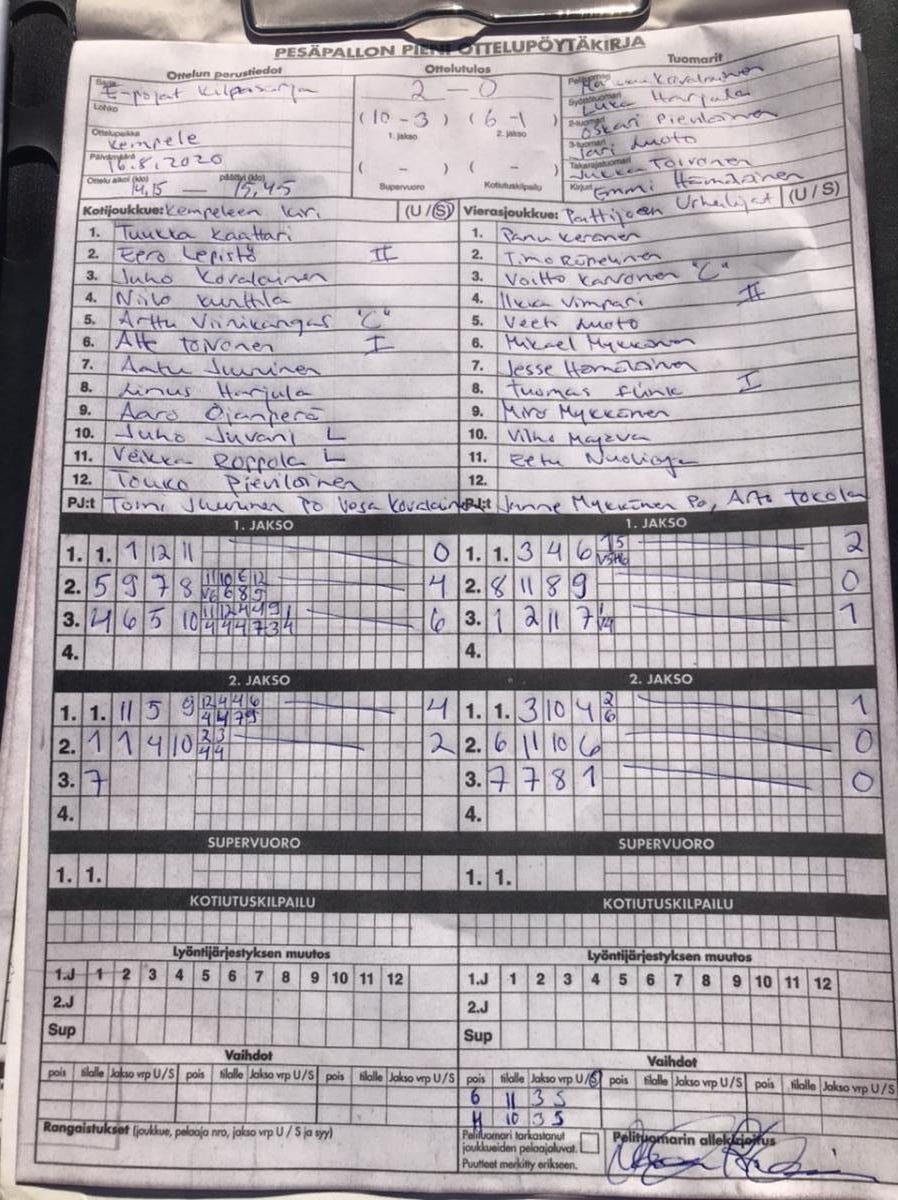 PESÄPALLON PIENI OTTELUPÖYTÄKIRJA
Ottelun perustiedot
Sarja E-pojat kilpasarja
Lohko
Ottelupaikka Kempele
Päivämäärä 16.8.2020
Ottelu alkoi (klo) 14,15 — päättyi (klo) 15,45
Ottelutulos
2 - 0
(10 - 3) (6 - 1)
1. jakso 2. jakso
( - ) ( - )
Supervuoro Kotiutuskilpailu
Tuomarit
Pelituomari
Syöttötuomari Luka Harjula
2-tuomari Oskari Pieviloinen
3-tuomari
Takarajatuomari Jukka Toivonen
Kirjuri Emmi Hämäläinen
Kotijoukkue: Kempeleen Kiri (U / S)
1. Tuukka Kaattari
2. Eero Lepistö II
3. Juho Kovalainen
4. Niilo Kunttila
5. Arttu Viinikangas "C"
6. Atte Toivonen I
7. Aatu Juurinen
8. Linus Harjula
9. Aaro Ojanperä
10. Juho Juvani L
11. Veikka Roppola L
12. Touko Pieviloinen
PJ:t Tomi Juurinen Po Vesa Kovalainen
Vierasjoukkue: Pattijoen Urheilijat (U / S)
1. Panu Keränen
2. Timo
3. Voitto Karvonen "C"
4. Ilkka Vimpari II
5. Veeti
6. Mikael Mykkänen
7. Jesse Hämäläinen
8. Tuomas Flink I
9. Miro Mykkänen
10. Vilho Majava
11. Eetu Nuolioja
12.
PJ:t Janne Mykkänen Po, Arto Tokola
1. JAKSO
1. 1. 1 12 11 0
2. 5 9 7 8 4
3. 4 6 5 10 6
4.
2. JAKSO
1. 1. 11 5 9 4
2. 1 1 4 10 2
3. 7
4.
SUPERVUORO
1. 1.
KOTIUTUSKILPAILU
1. JAKSO
1. 1. 3 4 6 2
2. 8 11 8 9 0
3. 1 2 11 7 1
4.
2. JAKSO
1. 1. 3 10 4 2 6 1
2. 6 11 10 6 0
3. 7 7 8 1 0
4.
SUPERVUORO
1. 1.
KOTIUTUSKILPAILU
Lyöntijärjestyksen muutos
1.J 1 2 3 4 5 6 7 8 9 10 11 12
2.J
Sup
Lyöntijärjestyksen muutos
1.J 1 2 3 4 5 6 7 8 9 10 11 12
2.J
Sup
Vaihdot
pois tilalle Jakso vrp U/S pois tilalle Jakso vrp U/S pois tilalle Jakso vrp U/S
Vaihdot
pois tilalle Jakso vrp U/S pois tilalle Jakso vrp U/S pois tilalle Jakso vrp U/S
6 11 3 S
11 10 3 S
Rangaistukset (joukkue, pelaaja nro, jakso vrp U / S ja syy)
Pelituomari tarkastanut
joukkueiden pelaajaluvat.
Puutteet merkitty erikseen.
Pelituomarin allekirjoitus